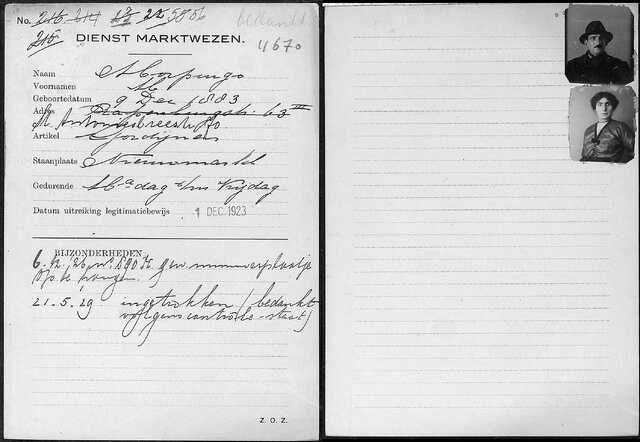 No. 216 214 22 5856 bedankt
215 DIENST MARKTWEZEN. 4670
Naam Morpurgo
Voornamen M
Geboortedatum 9 Dec 1883
Adres 63 III
St. Antoniebreestr. 70
Artikel Gordijnen
Staanplaats Nieuwmarkt
Gedurende Maandag t/m Vrijdag
Datum uitreiking legitimatiebewijs 1 DEC. 1923
BIJZONDERHEDEN.
6.12.'26 nº 590 gew. nummerplaatje
op te hangen.
21.5.'29 ingetrokken (bedankt
volgens controle-staat)
Z. O. Z.